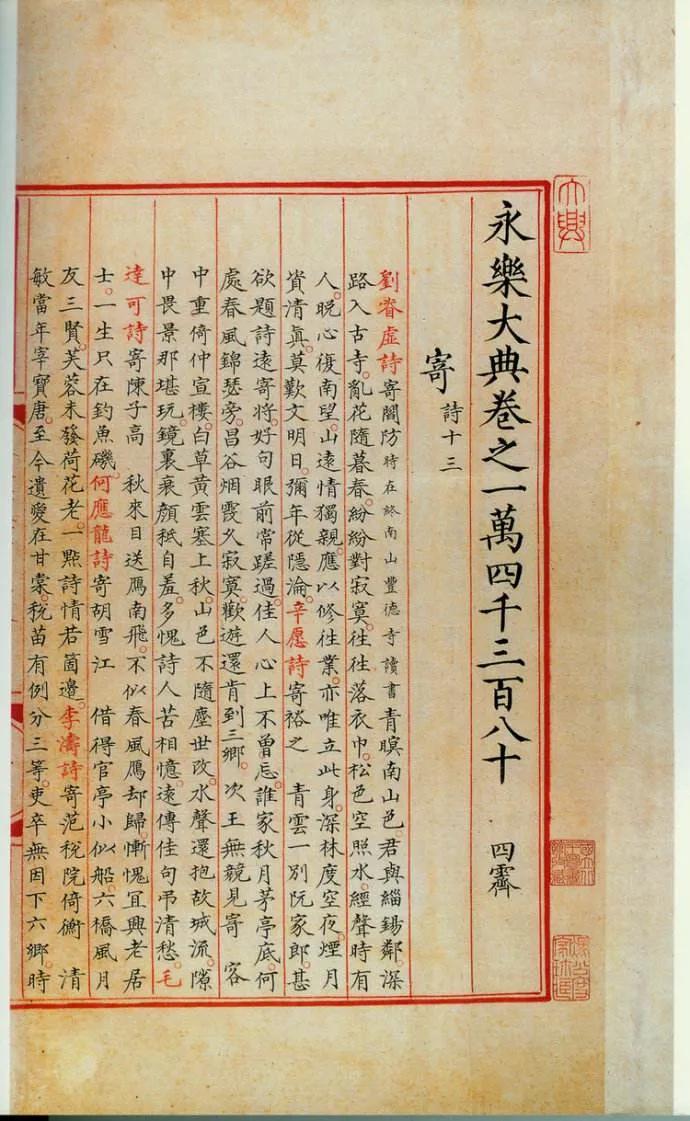 永樂大典卷之一萬四千三百八十 四霽
寄 詩十三
劉眘虛詩寄閻防時在終南山豐德寺讀書青暝南山色。君與緇錫鄰。深
路入古寺。亂花隨暮春。紛紛對寂寞。往往落衣巾。松色空照水。經聲時有
人。晚心復南望。山遠情獨親。應以修往業。亦唯立此身。深林度空夜。煙月
資清真。莫歎文明日。彌年從隱淪。辛愿詩寄裕之 青雲一別阮家郎。甚
欲題詩遠寄將。好句眼前常蹉過。佳人心上不曾忘。誰家秋月茅亭底。何
處春風錦瑟旁。昌谷烟霞久寂寞。歡遊還肯到三鄉。次王無競見寄 客
中重倚仲宣樓。白草黃雲塞上秋。山色不隨塵世改。水聲還抱故城流。隙
中畏景那堪玩。鏡裏衰顏秖自羞。多愧詩人苦相憶。遠傳佳句弔清愁。毛
達可詩寄陳子高 秋來目送鴈南飛。不似春風鴈却歸。慚愧宜興老居
士。一生只在釣魚磯。何應龍詩寄胡雪江 借得官亭小似船。六橋風月
友三賢。芙蓉未發荷花老。一點詩情若箇邊。李濤詩寄范稅院倚衡 清
敏當年宰寶唐。至今遺愛在甘棠。稅苗有例分三等。吏卒無因下六鄉。時
大興